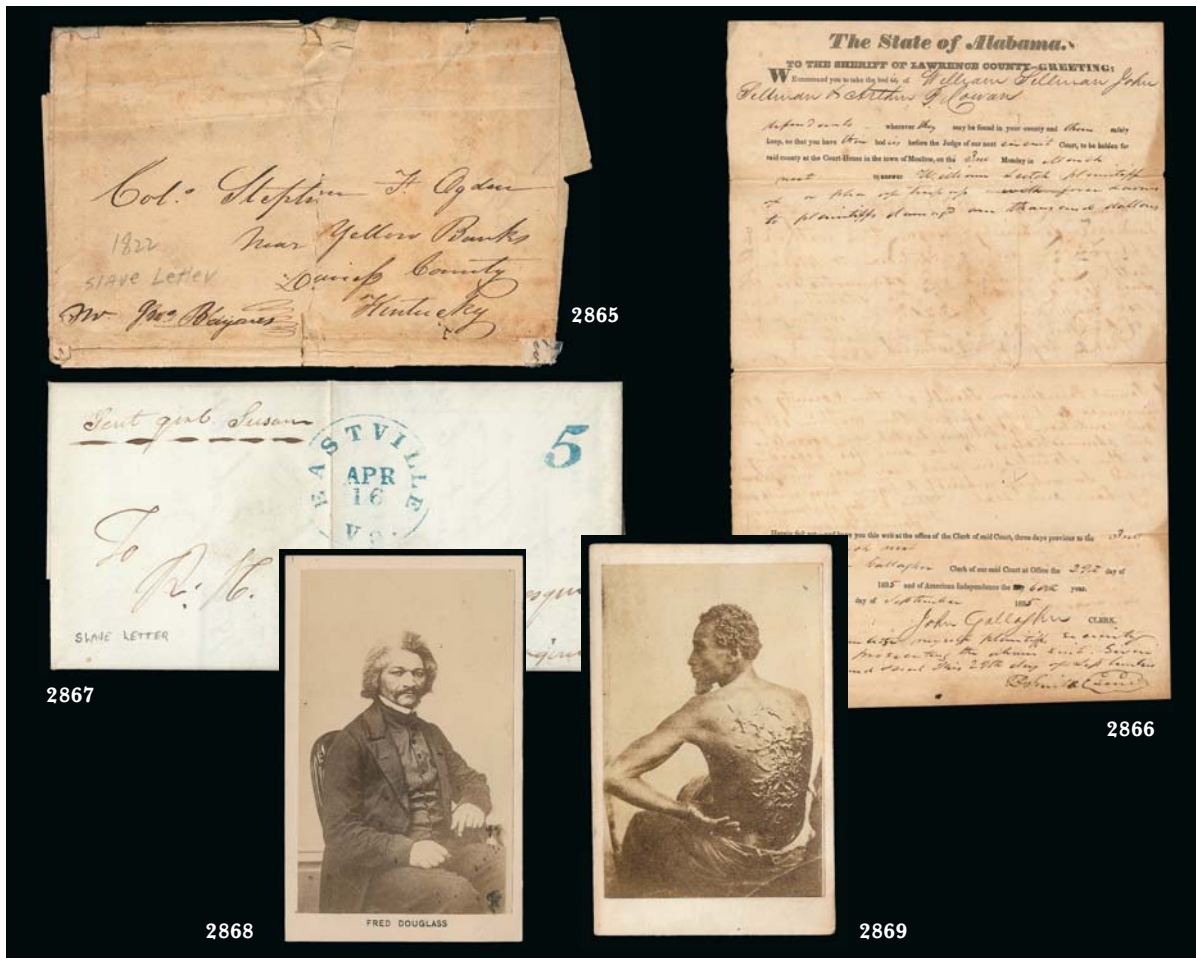 Col. Stephen F. Ogden
Near Yellow Banks
Daviess County
Kentucky
1822
Slave Letter
Mr. Jno.
2865
Sent girl Susan
EASTVILLE
APR
16
Va.
5
To
R. H.
SLAVE LETTER
2867
The State of Alabama.
TO THE SHERIFF OF LAWRENCE COUNTY—GREETING:
WE command you to take the bodies of William Sellman John
Sellman & Arthur Cowan
defendants wherever they may be found in your county and them safely
keep, so that you have their bodies before the Judge of our next circuit Court, to be holden for
said county at the Court-House in the town of Moulton, on the 3rd Monday in March
next to answer William Leetch plaintiff
of a plea of
to plaintiffs damage one thousand dollars
have you this writ at the office of the Clerk of said Court, three days previous to the 3rd
Gallagher Clerk of our said Court at Office the 29th day of
1835 and of American Independence the 60th year.
day of September 1835
John Gallagher CLERK.
plaintiff
this 29th day of September
Smith
2866
FRED DOUGLASS
2868
2869